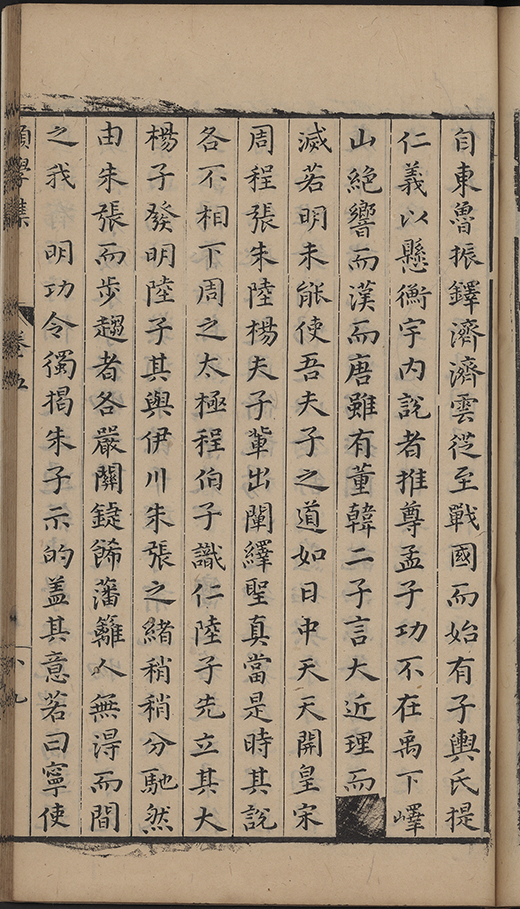 自東魯振鐸濟濟雲從至戰國而始有子輿氏提
仁義以懸衡宇内說者推尊孟子功不在禹下嶧
山絶響而漢而唐雖有董韓二子言大近理而
滅若明未能使吾夫子之道如日中天天開皇宋
周程張朱陸楊夫子輩出闡繹聖真當是時其說
各不相下周之太極程伯子識仁陸子先立其大
楊子發明陸子其與伊川朱張之緒稍稍分馳然
由朱張而步趨者各嚴關鍵飾藩籬人無淂而間
之我 明功令獨揭朱子示的盖其意若曰寧使
學集 卷五